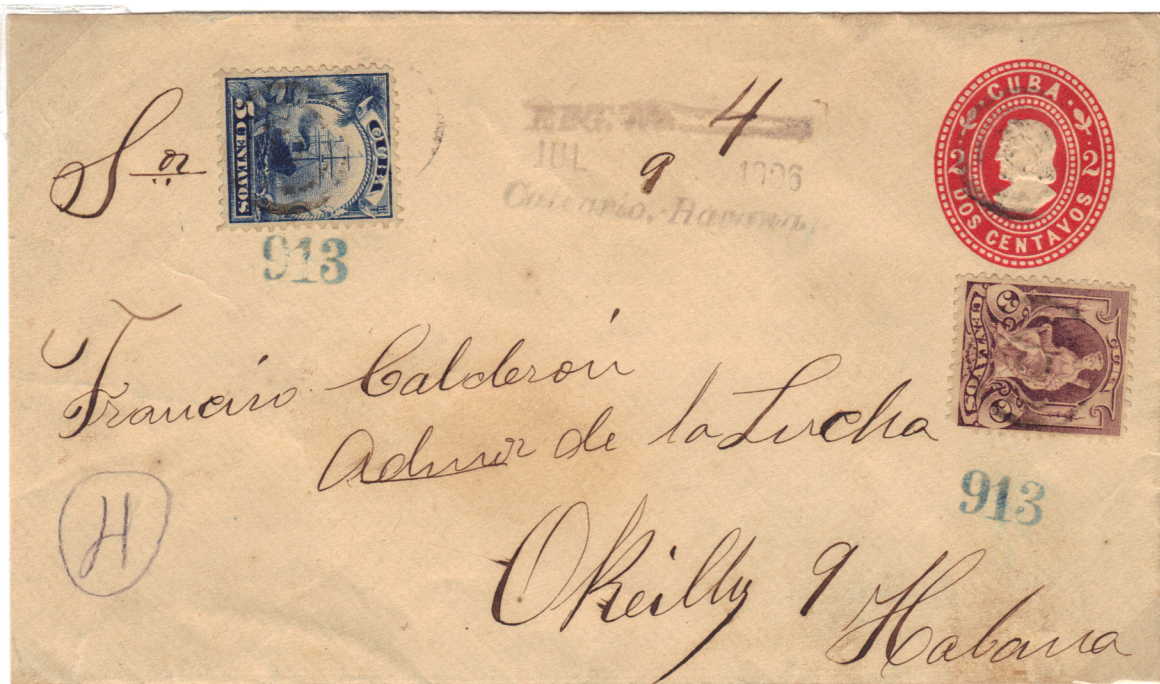 Sor
CUBA
5 CENTAVOS
913
REG. No. 4
JUL 9 1906
Calvario, Havana.
CUBA
2 2
DOS CENTAVOS
CUBA
3 3
CENTAVOS
913
Francisco Calderón
Admor de la Lucha
OReilly 9
Habana
H